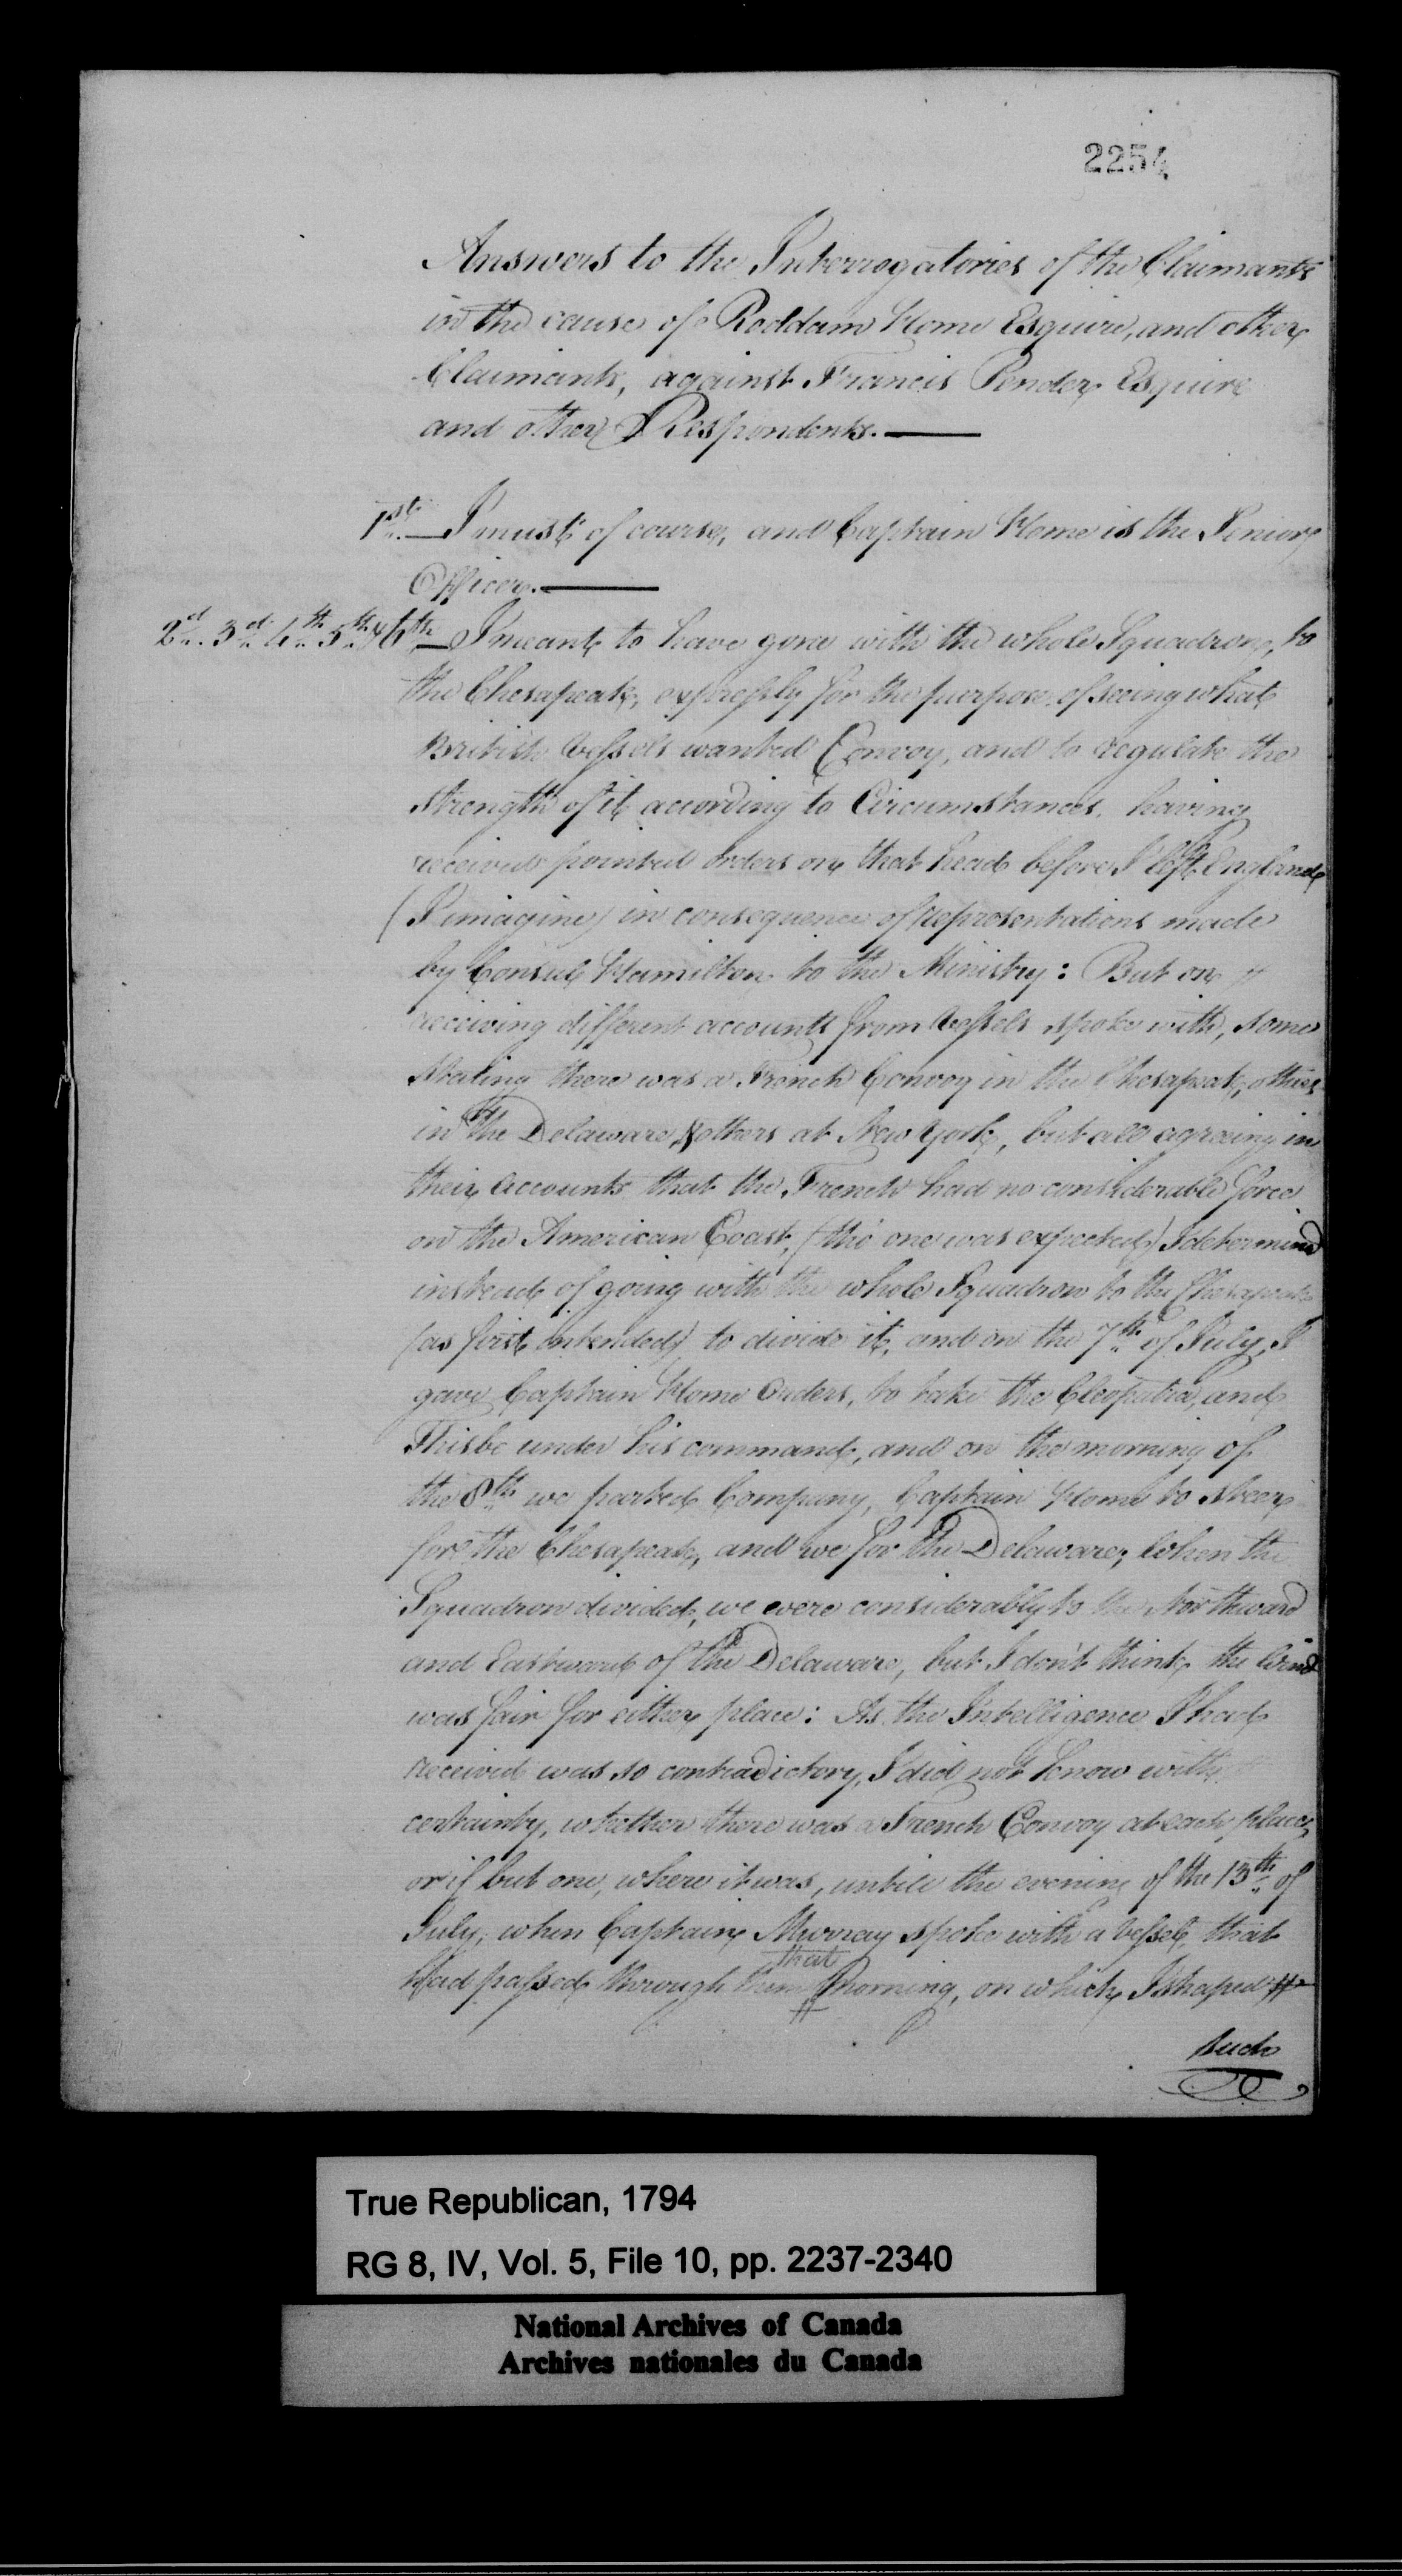 2254
Answers to the Interrogatories of the Claimants
in the cause of Roddam Home Esquire, and other
Claimants, against Francis Pender Esquire
and other Respondents.—
1st.— I must of course, and Captain Home is the Senior
Officer.—
2d. 3d. 4th. 5th. & 6th.— I meant to have gone with the whole Squadron, to
the Chesapeak, expressly for the purpose of seeing what
British Vessels wanted Convoy, and to regulate the
strength of it according to Circumstances, having
received pointed orders on that head before I left England
(I imagine) in consequence of representations made
by Consul Hamilton to the Ministry: But on
receiving different accounts from Vessels spoke with, some
stating there was a French Convoy in the Chesapeak, others
in the Delaware, & others at New York, but all agreeing in
their accounts that the French had no considerable force
on the American Coast, (tho' one was expected) I determined
instead of going with the whole Squadron to the Chesapeak
(as first intended) to divide it, and on the 7th. of July, I
gave Captain Home Orders, to take the Cleopatra, and
Thisbe under his command, and on the morning of
the 8th. we parted Company, Captain Home to steer
for the Chesapeak, and we for the Delaware; When the
Squadron divided, we were considerably to the Northward
and Eastward of the Delaware, but I don't think the Wind
was fair for either place: As the Intelligence I had
received was so contradictory, I did not know with
certainty, whether there was a French Convoy at each place,
or if but one, where it was, until the evening of the 13th. of
July, when Captain Murray spoke with a Vessel, that
that
had passed through them # morning, on which I shaped #
such
True Republican, 1794
RG 8, IV, Vol. 5, File 10, pp. 2237-2340
National Archives of Canada
Archives nationales du Canada